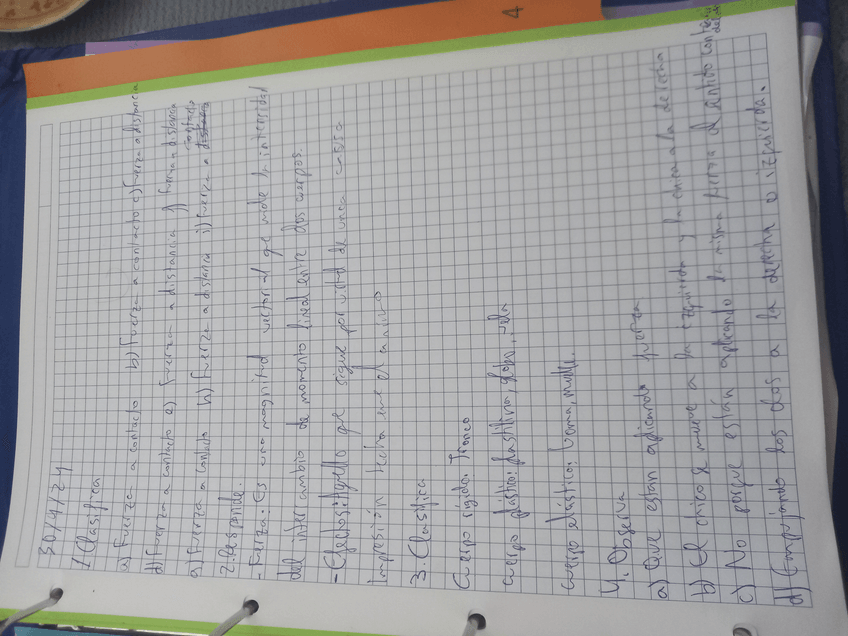 4
30/4/24
1 Clasifica
a) Fuerza a contacto b) Fuerza a contacto c) Fuerza a distancia
d) Fuerza a contacto e) Fuerza a distancia f) Fuerza a distancia
a) Fuerza a contacto h) Fuerza a distancia i) Fuerza a distancia contacto
2. Responde.
- Fuerza: Es una magnitud vectorial que mide la intensidad
del intercambio de momento lineal entre dos cuerpos.
- Efectos: Aquello que sigue por virtud de una causa
Impresión hecha en el ánimo
3. Clasifica
Cuerpo rígido: Tronco
cuerpo plástico: plastilina, globo, vela
cuerpo elástico: Goma, muelle.
4. Observa
a) Que están aplicando fuerza
b) El chico se mueve a la izquierda y la chica a la derecha
c) No porque están aplicando la misma fuerza de sentido contrario
d) Empujando los dos a la derecha o izquierda.